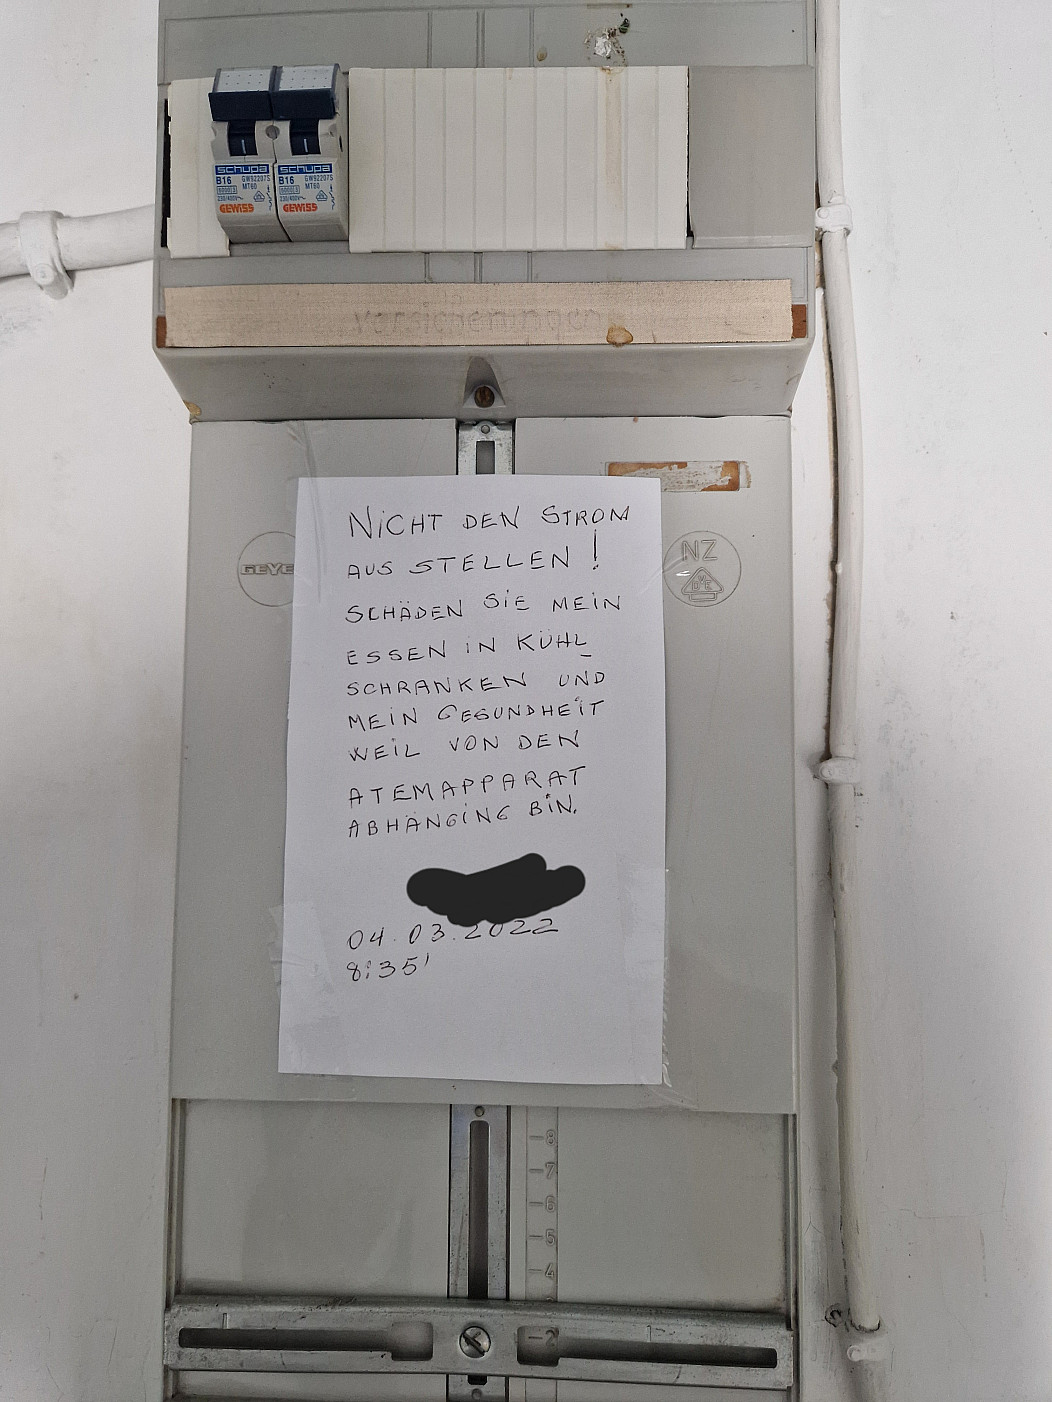 schupa schupa
B16 GW92207S B16 GW92207S
MT60 MT60
6000 3 6000 3
230/400V~ 230/400V~
GEWISS GEWISS
NICHT DEN STROM
AUS STELLEN!
SCHÄDEN SIE MEIN
ESSEN IN KÜHL_
SCHRANKEN UND
MEIN GESUNDHEIT
WEIL VON DEN
ATEMAPPARAT
ABHÄNGING BIN.
04.03.2022
8:35'
GEYE
NZ
VDE
-8
-7
-6
-5
-4
-2